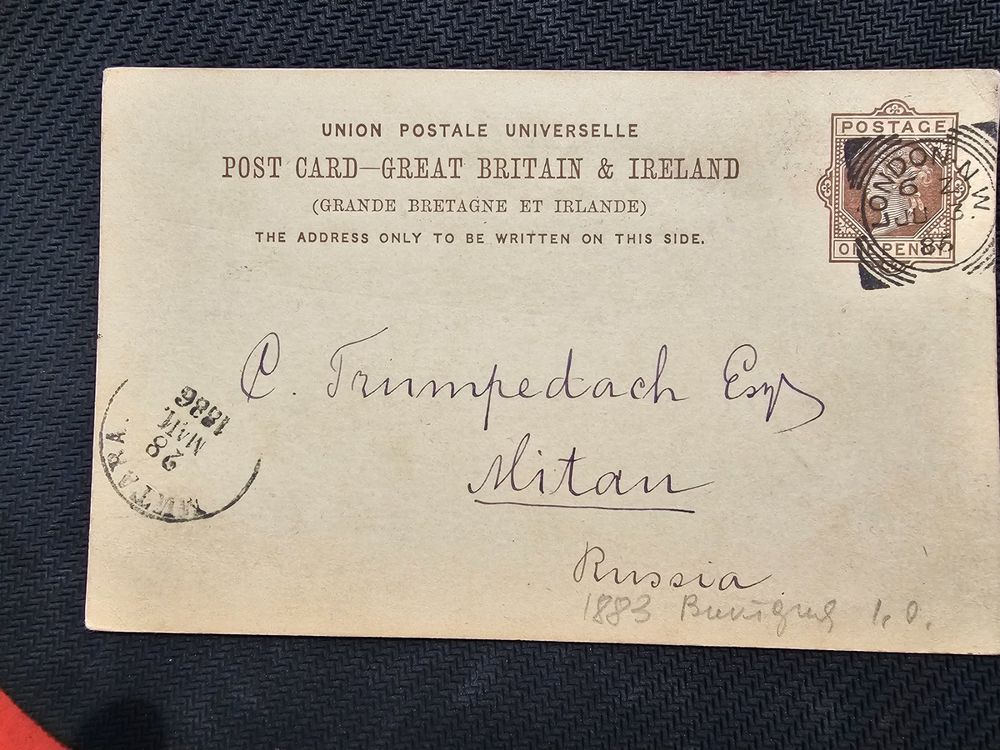 UNION POSTALE UNIVERSELLE
POST CARD—GREAT BRITAIN & IRELAND
(GRANDE BRETAGNE ET IRLANDE)
THE ADDRESS ONLY TO BE WRITTEN ON THIS SIDE.
POSTAGE
ONE PENNY
LONDON.N.W.
6
JU 8
86
C. Trumpedach Esq
Mitan
Russia
1883
28
МАЯ
1886